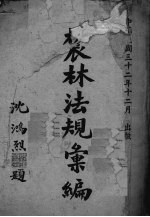 國三十二年十二月 出版
農林法規彙編
沈鴻烈題